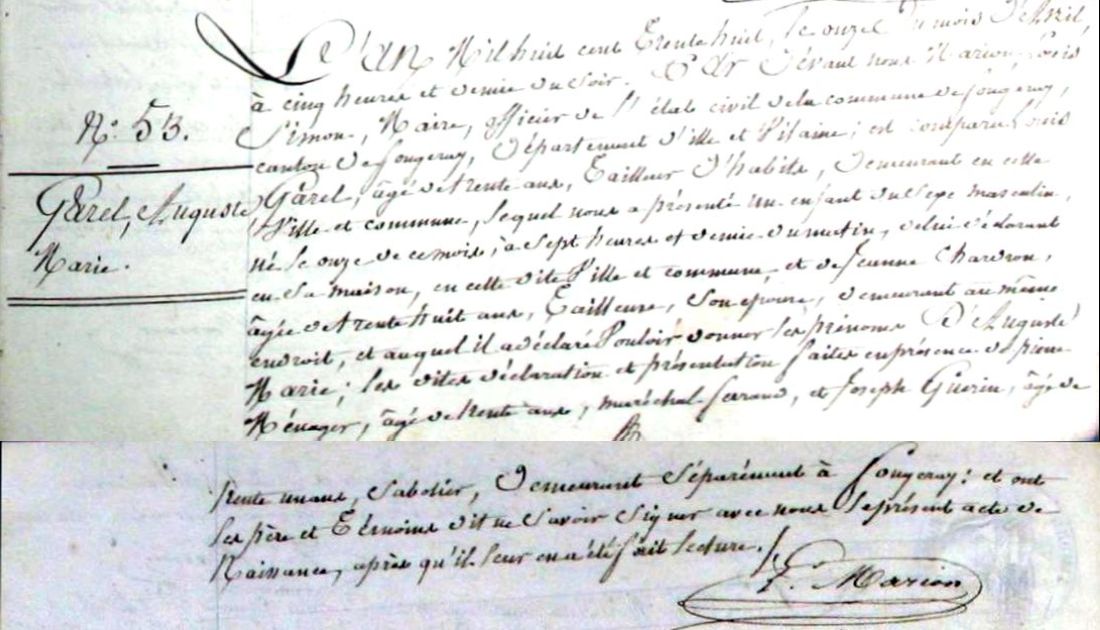 N.° 53.
Garel, Auguste
Marie.
L'An Mil huit cent Trente huit, le onze du mois d'Avril,
à cinq heures et demie du soir. Par devant nous Marion, Louis
Simon, Maire, officier de l'état civil de la commune de fougeray,
canton de fougeray, Département d'Ille et Vilaine; est comparu Louis
Garel, âgé de trente ans, Tailleur d'habits, demeurant en cette
Ville et commune, lequel nous a présenté un enfant du sexe masculin,
né le onze de ce mois, à sept heures et demie du matin, de lui déclarant
en sa maison, en cette dite Ville et commune, et de Jeanne Chardron,
âgée de trente huit ans, Tailleure, son épouse, demeurant au même
endroit, et auquel il a déclaré Vouloir donner les prénoms D'Auguste
Marie; les dites déclaration et présentation faites en présence de pierre
Ménager, âgé de trente ans, maréchal ferrand, et Joseph Guerin, âgé de
trente un ans, Sabotier, Demeurant Séparément à Fougeray: et ont
les père et Témoins dit ne Savoir Signer avec nous le présent acte de
Naissance, après qu'il leur en a été fait lecture./.
F. Marion